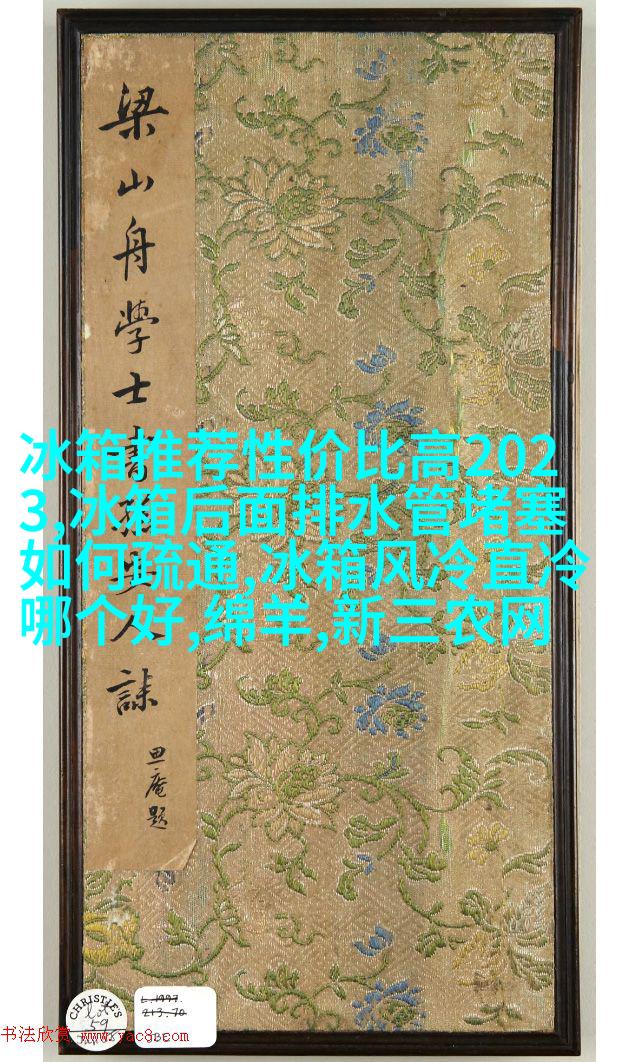 梁山舟學士書人誄
庵題
冰箱推荐性价比高202
3,冰箱后面排水管堵塞
如何疏通,冰箱风冷直冷
哪个好,绵羊,新三农网
CHRISTIE'S
Lot
59
L.1997.
213.70
书法欣赏 www.yac8.com